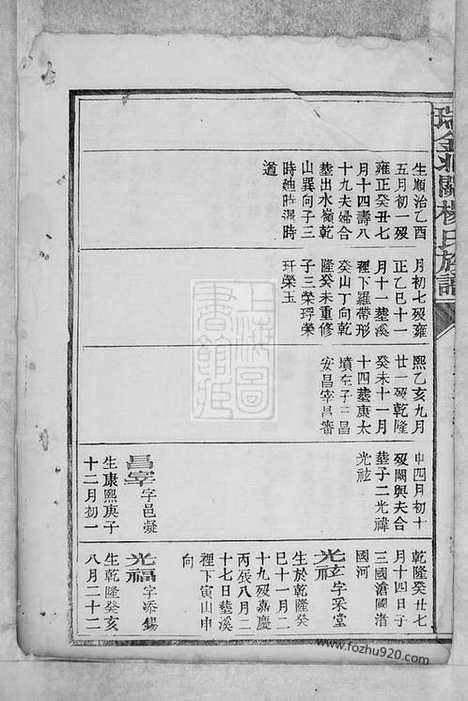 瑞金北關楊氏族譜
生順治乙酉
五月初一歿
雍正癸丑七
月十四壽八
十九夫婦合
塟出水嶺乾
山巽向子三
時 時 時
道
月初七歿雍
正乙巳十一
月十一塟溪
裡下羅帶形
癸山丁向乾
隆癸未重修
子三榮琈榮
玕榮玉
熙乙亥九月
廿一歿乾隆
癸未十一月
十四塟庚太
墳左子三昌
安昌宰昌審
申四月初十
歿關與夫合
塟子二光禕
光祓
昌宰字邑凝
生康熙庚子
十二月初一
乾隆癸丑七
月十四日子
三國滄國洛
國河
光 字采堂
生於乾隆癸
巳十一月二
十九歿嘉慶
丙辰八月二
十七日塟溪
裡下寅山申
向
光福字添錫
生乾隆癸亥
八月二十二
上海圖書館藏
www.fozhu920.com